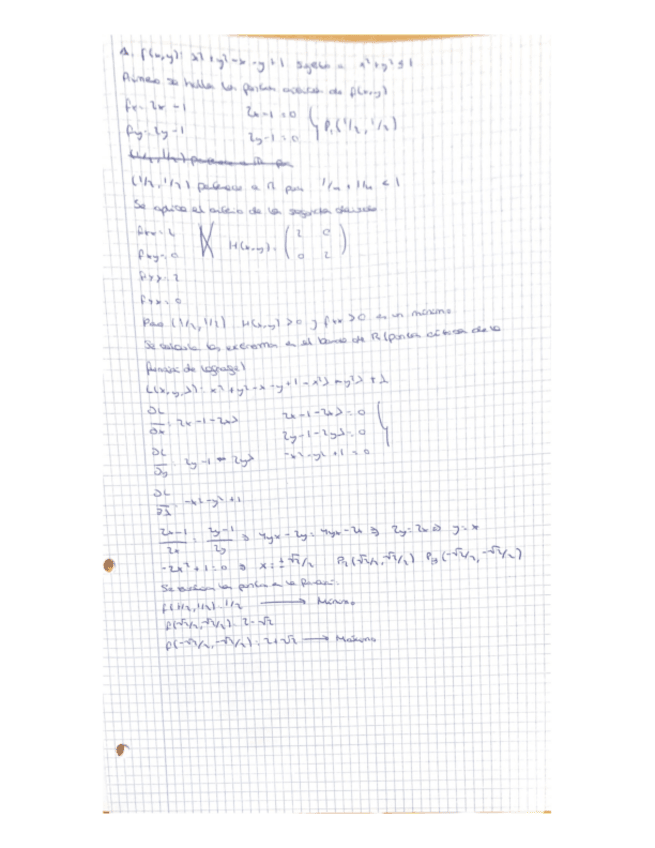 1. f(x,y): x²+y²-x-y+1 sujeto a x²+y²≤1
Primero se halla los puntos críticos de f(x,y)
fx= 2x-1 2x-1=0
fy= 2y-1 2y-1=0 } P₁(1/2, 1/2)
(1/2, 1/2) pertenece a R pues 1/4+1/4<1
Se aplica el criterio de la segunda derivada
fxx= 2
fxy= 0 H(x,y)= (2 0
0 2)
fyy= 2
fyx= 0
Para (1/2, 1/2) H(x,y)>0 y fxx>0 es un mínimo
Se calcula los extremos en el borde de R (puntos críticos de la
función de Lagrange)
L(x,y,λ): x²+y²-x-y+1-x²λ-y²λ+λ
∂L/∂x: 2x-1-2xλ 2x-1-2xλ=0
2y-1-2yλ=0
∂L/∂y: 2y-1-2yλ -x²-y²+1=0 }
∂L/∂λ: -x²-y²+1
2x-1/2x = 2y-1/2y ⇒ 4yx-2y=4yx-2x ⇒ 2y=2x ⇒ y=x
-2x²+1=0 ⇒ x=±√2/2 P₂(√2/2, √2/2) P₃(-√2/2, -√2/2)
Se evalúan los puntos en la función
f(1/2, 1/2)= 1/2 → Mínimo
f(√2/2, √2/2)= 2-√2
f(-√2/2, -√2/2)= 2+√2 → Máximo